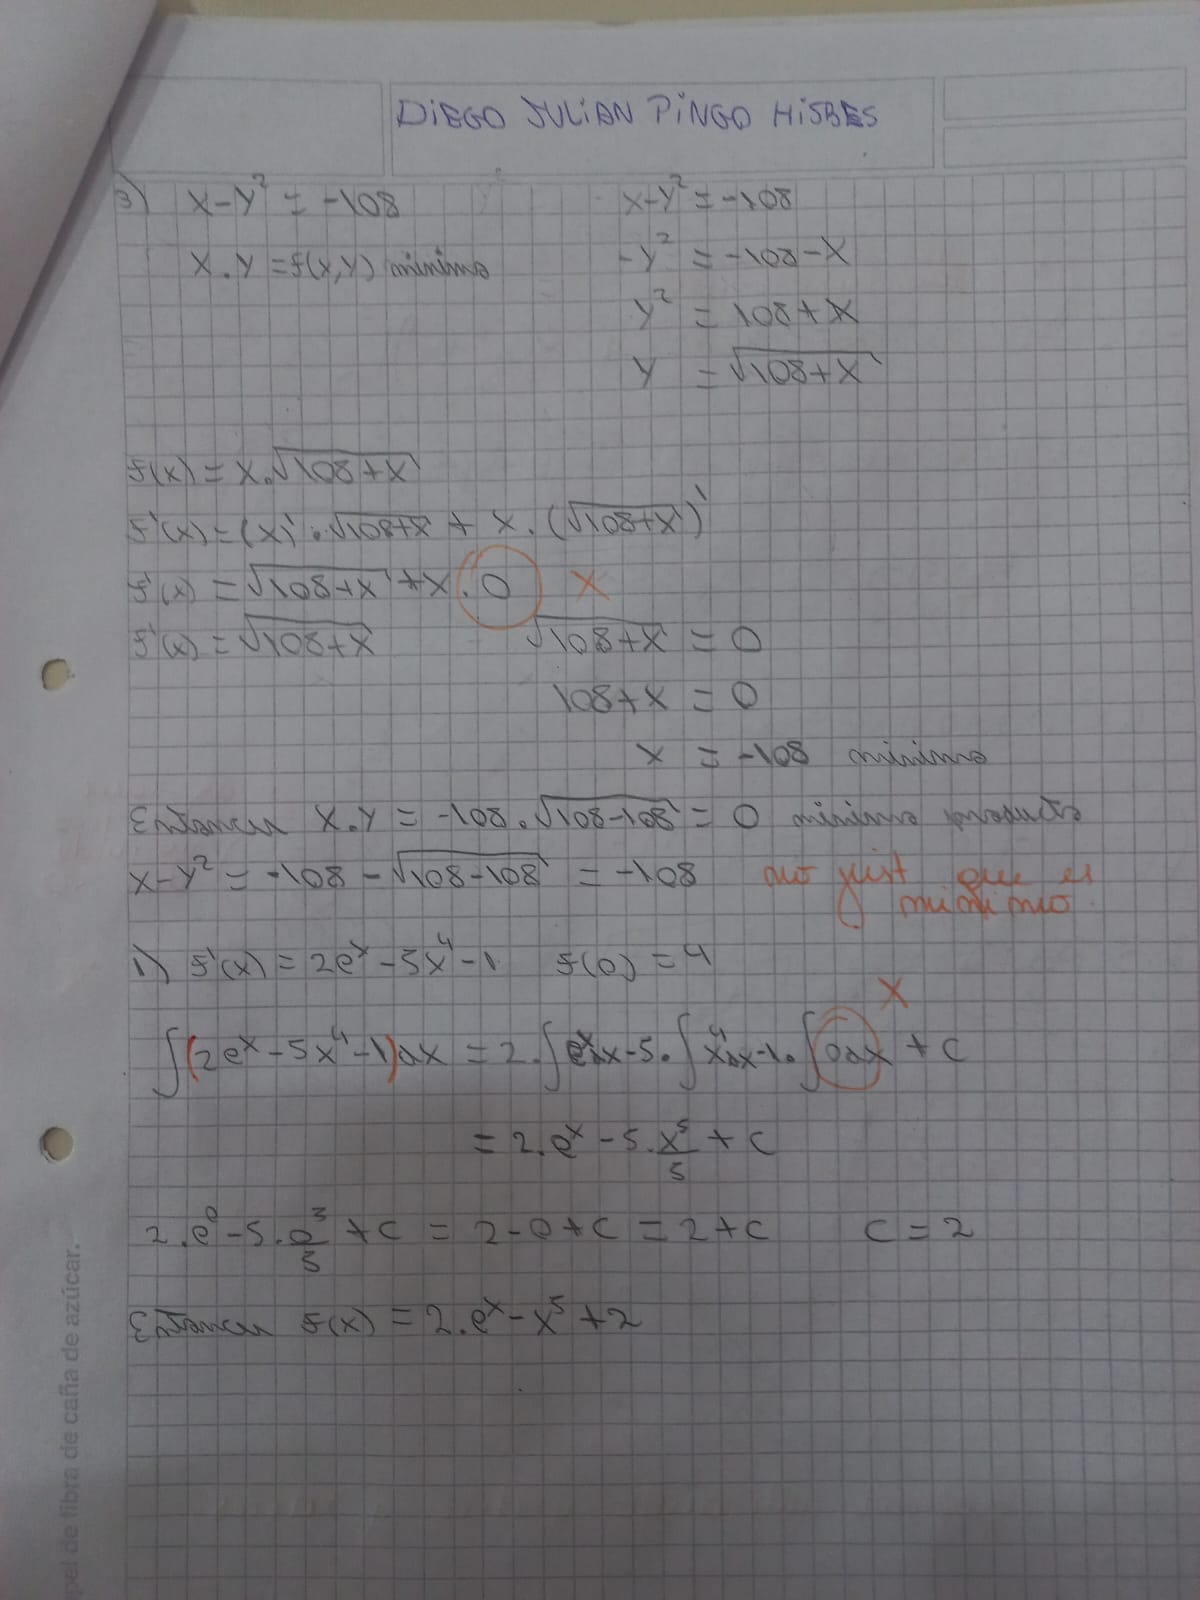 DIEGO JULIAN PINGO HISBES
3) x-y² = -108
x.y = f(x,y) minimo
x-y² = -108
-y² = -108-x
y² = 108+x
y = √108+x
f(x) = x.√108+x
f'(x) = (x)'.√108+x + x.(√108+x)'
f'(x) = √108+x + x.0 X
f'(x) = √108+x √108+x = 0
108+x = 0
x = -108 minimo
Entonces x.y = -108.√108-108 = 0 minimo producto
x-y² = -108-√108-108 = -108 no just que es
minimo.
1) f'(x) = 2eˣ-5x⁴-1 f(0) = 4
X
∫(2eˣ-5x⁴-1)dx = 2.∫eˣdx-5.∫x⁴dx-1.∫0dx + c
= 2.eˣ-5.x⁵/5 + c
2.e⁰-5.0⁵/5 + c = 2-0+c = 2+c c = 2
Entonces f(x) = 2.eˣ-x⁵+2
pel de fibra de caña de azúcar.